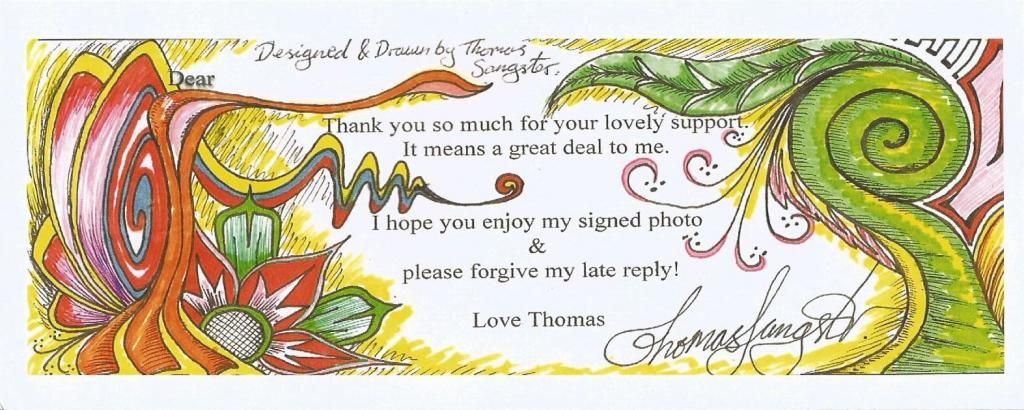 Designed & Drawn by Thomas
Sangster.
Dear
Thank you so much for your lovely support.
It means a great deal to me.
I hope you enjoy my signed photo
&
please forgive my late reply!
Love Thomas
Thomas Sangster